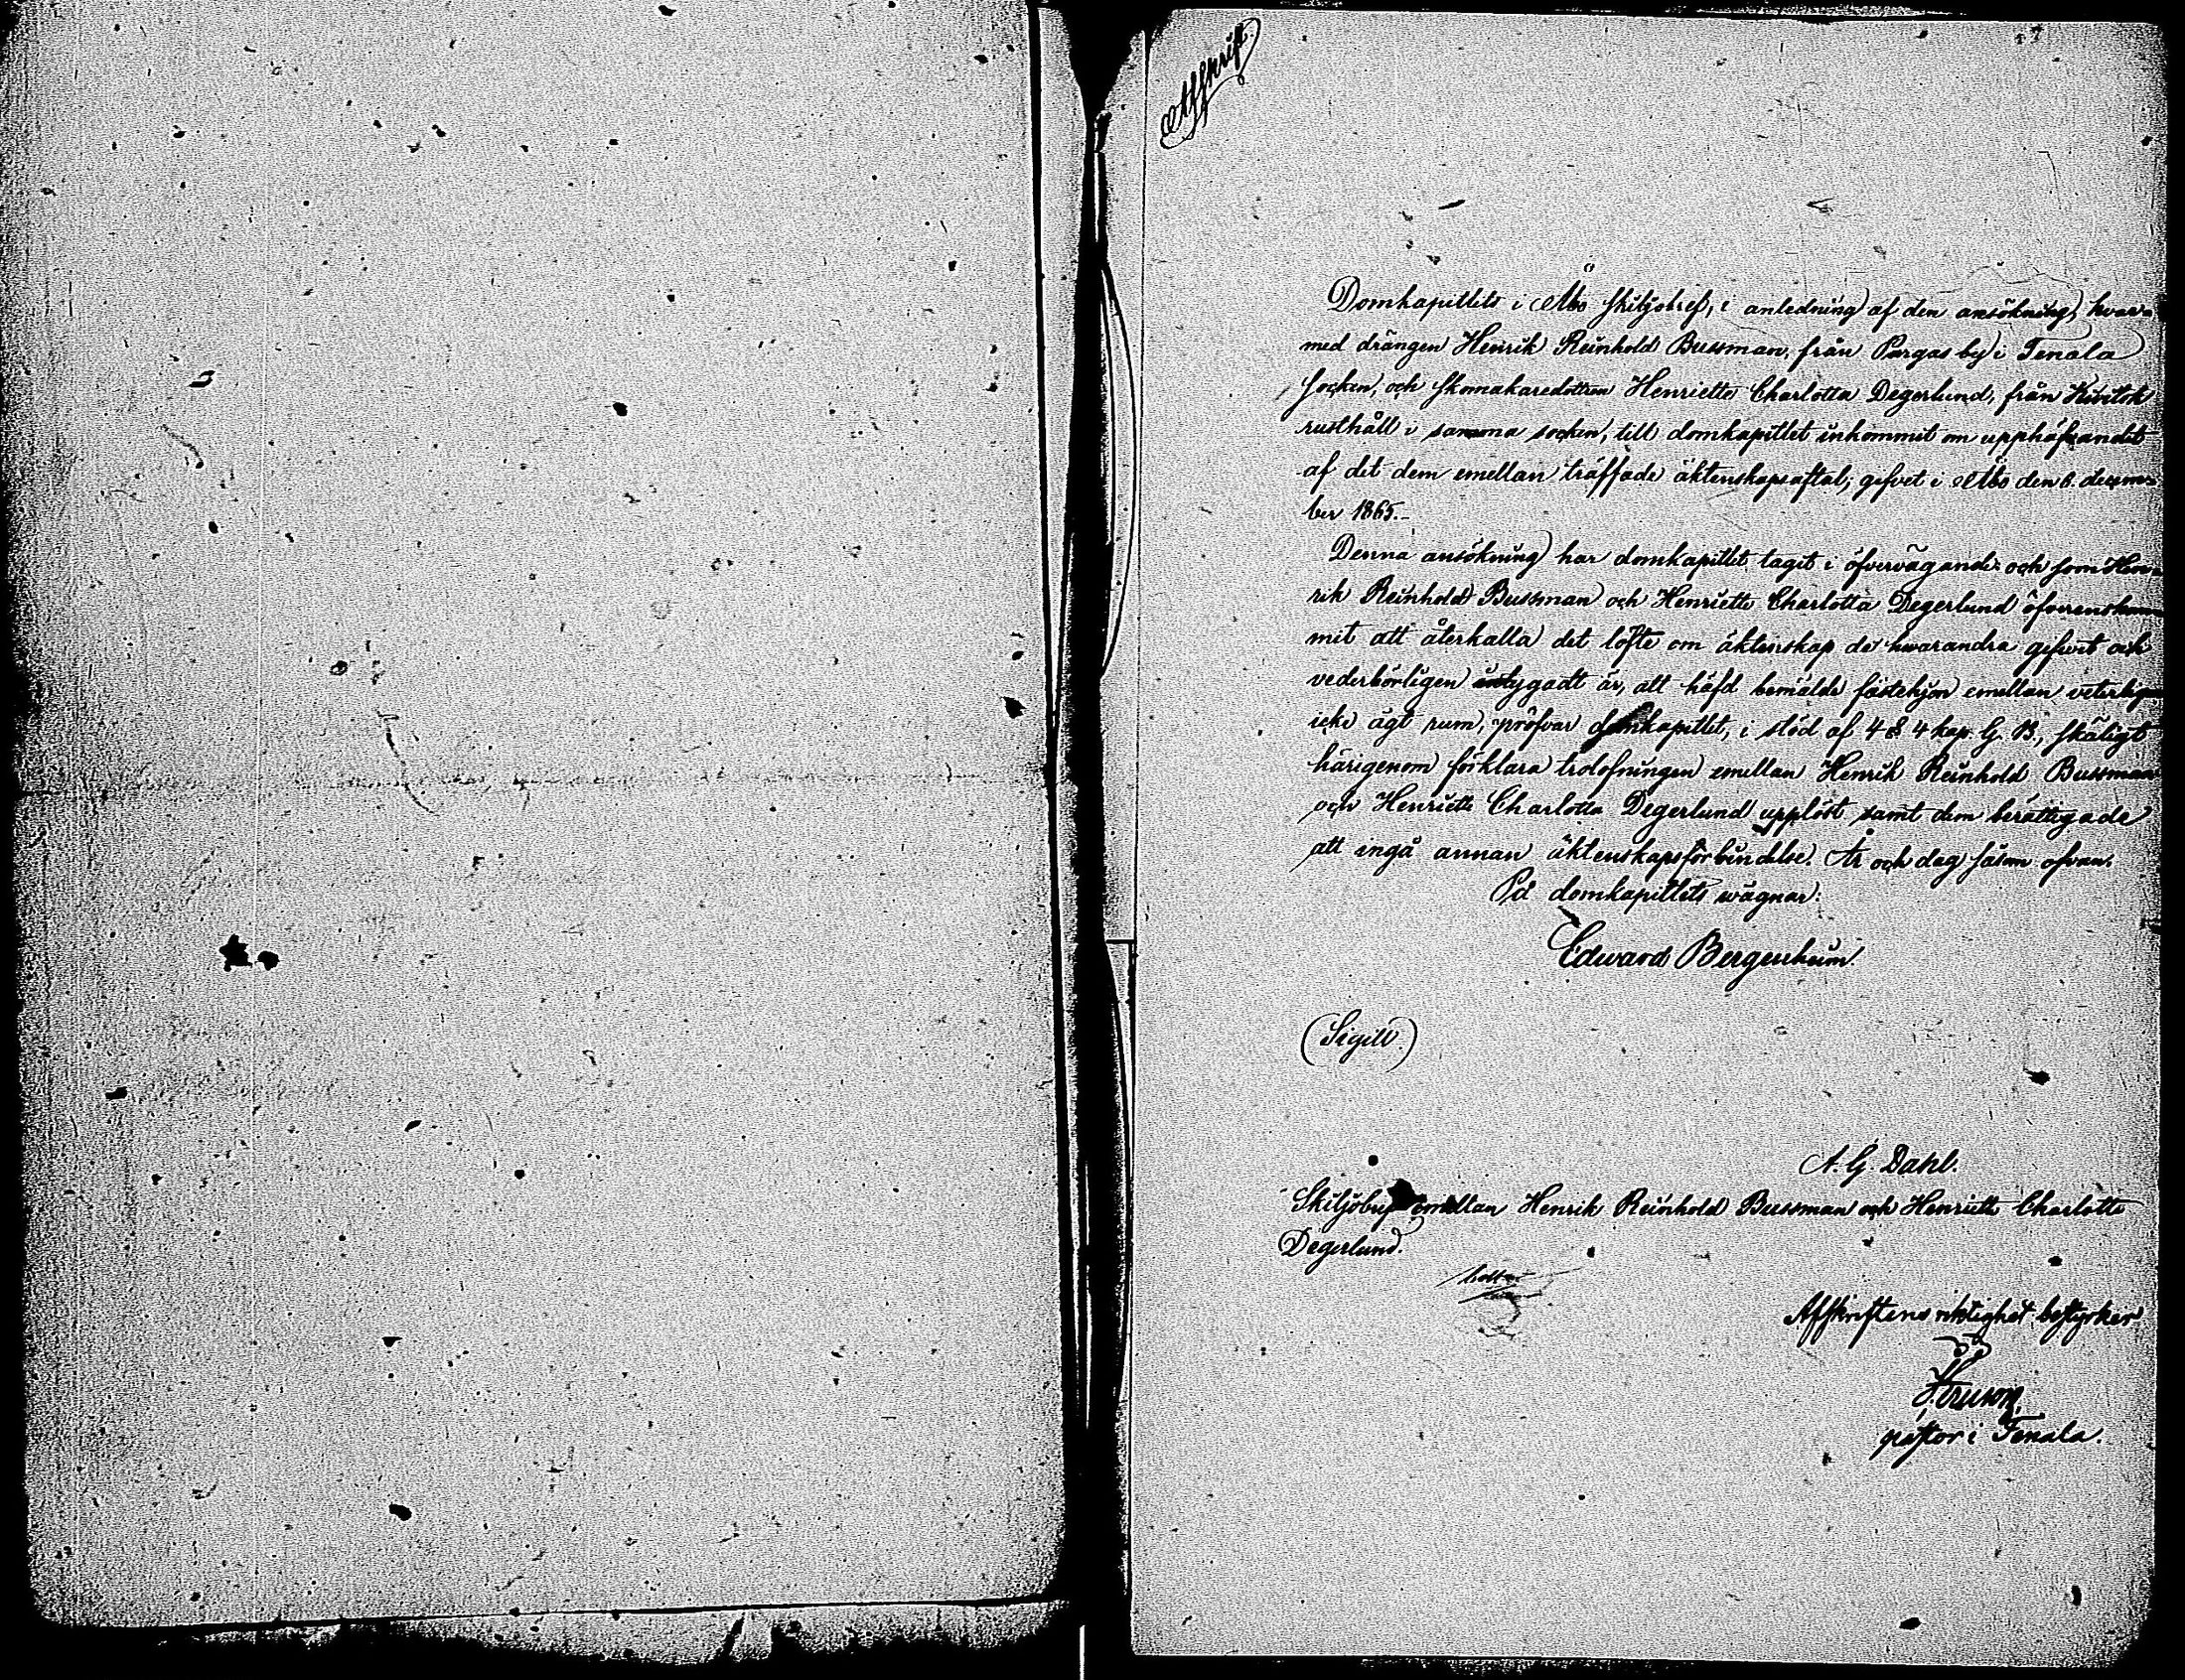 Afskrift.
Domkapitlets i Åbo skiljobref, i anledning af den ansökning, hvar-
med drängen Henrik Reinhold Bussman, från Pargas by i Tenala
socken, och skomakaredottren Henriette Charlotta Degerlund, från
rusthåll i samma socken, till domkapitlet inkommit om upphäfvandet
af det dem emellan träffade äktenskapsaftal; gifvet i Åbo den 6. decem-
ber 1865.-
Denna ansökning har domkapitlet tagit i öfvervägande: och som Hen-
rik Reinhold Bussman och Henriette Charlotta Degerlund öfverenskom-
mit att återkalla det löfte om äktenskap de hvarandra gifvit och
vederbörligen intygadt är, att häfd bemälde fästehjon emellan veterligen
icke ägt rum; pröfvar domkapitlet, i stöd af 4 § 4 kap. G. B., skäligt
härigenom förklara trolofningen emellan Henrik Reinhold Bussman
och Henriette Charlotta Degerlund upplöst samt dem berättigade
att ingå annan äktenskapsförbindelse. År och dag såsom ofvan.
På domkapitlets wägnar:
Edward Bergenheim.
(Sigill.)
A. G. Dahl.
Skiljobref emellan Henrik Reinhold Bussman och Henriette Charlotta
Degerlund.
Afskriftens riktighet bestyrker
pastor i Tenala.